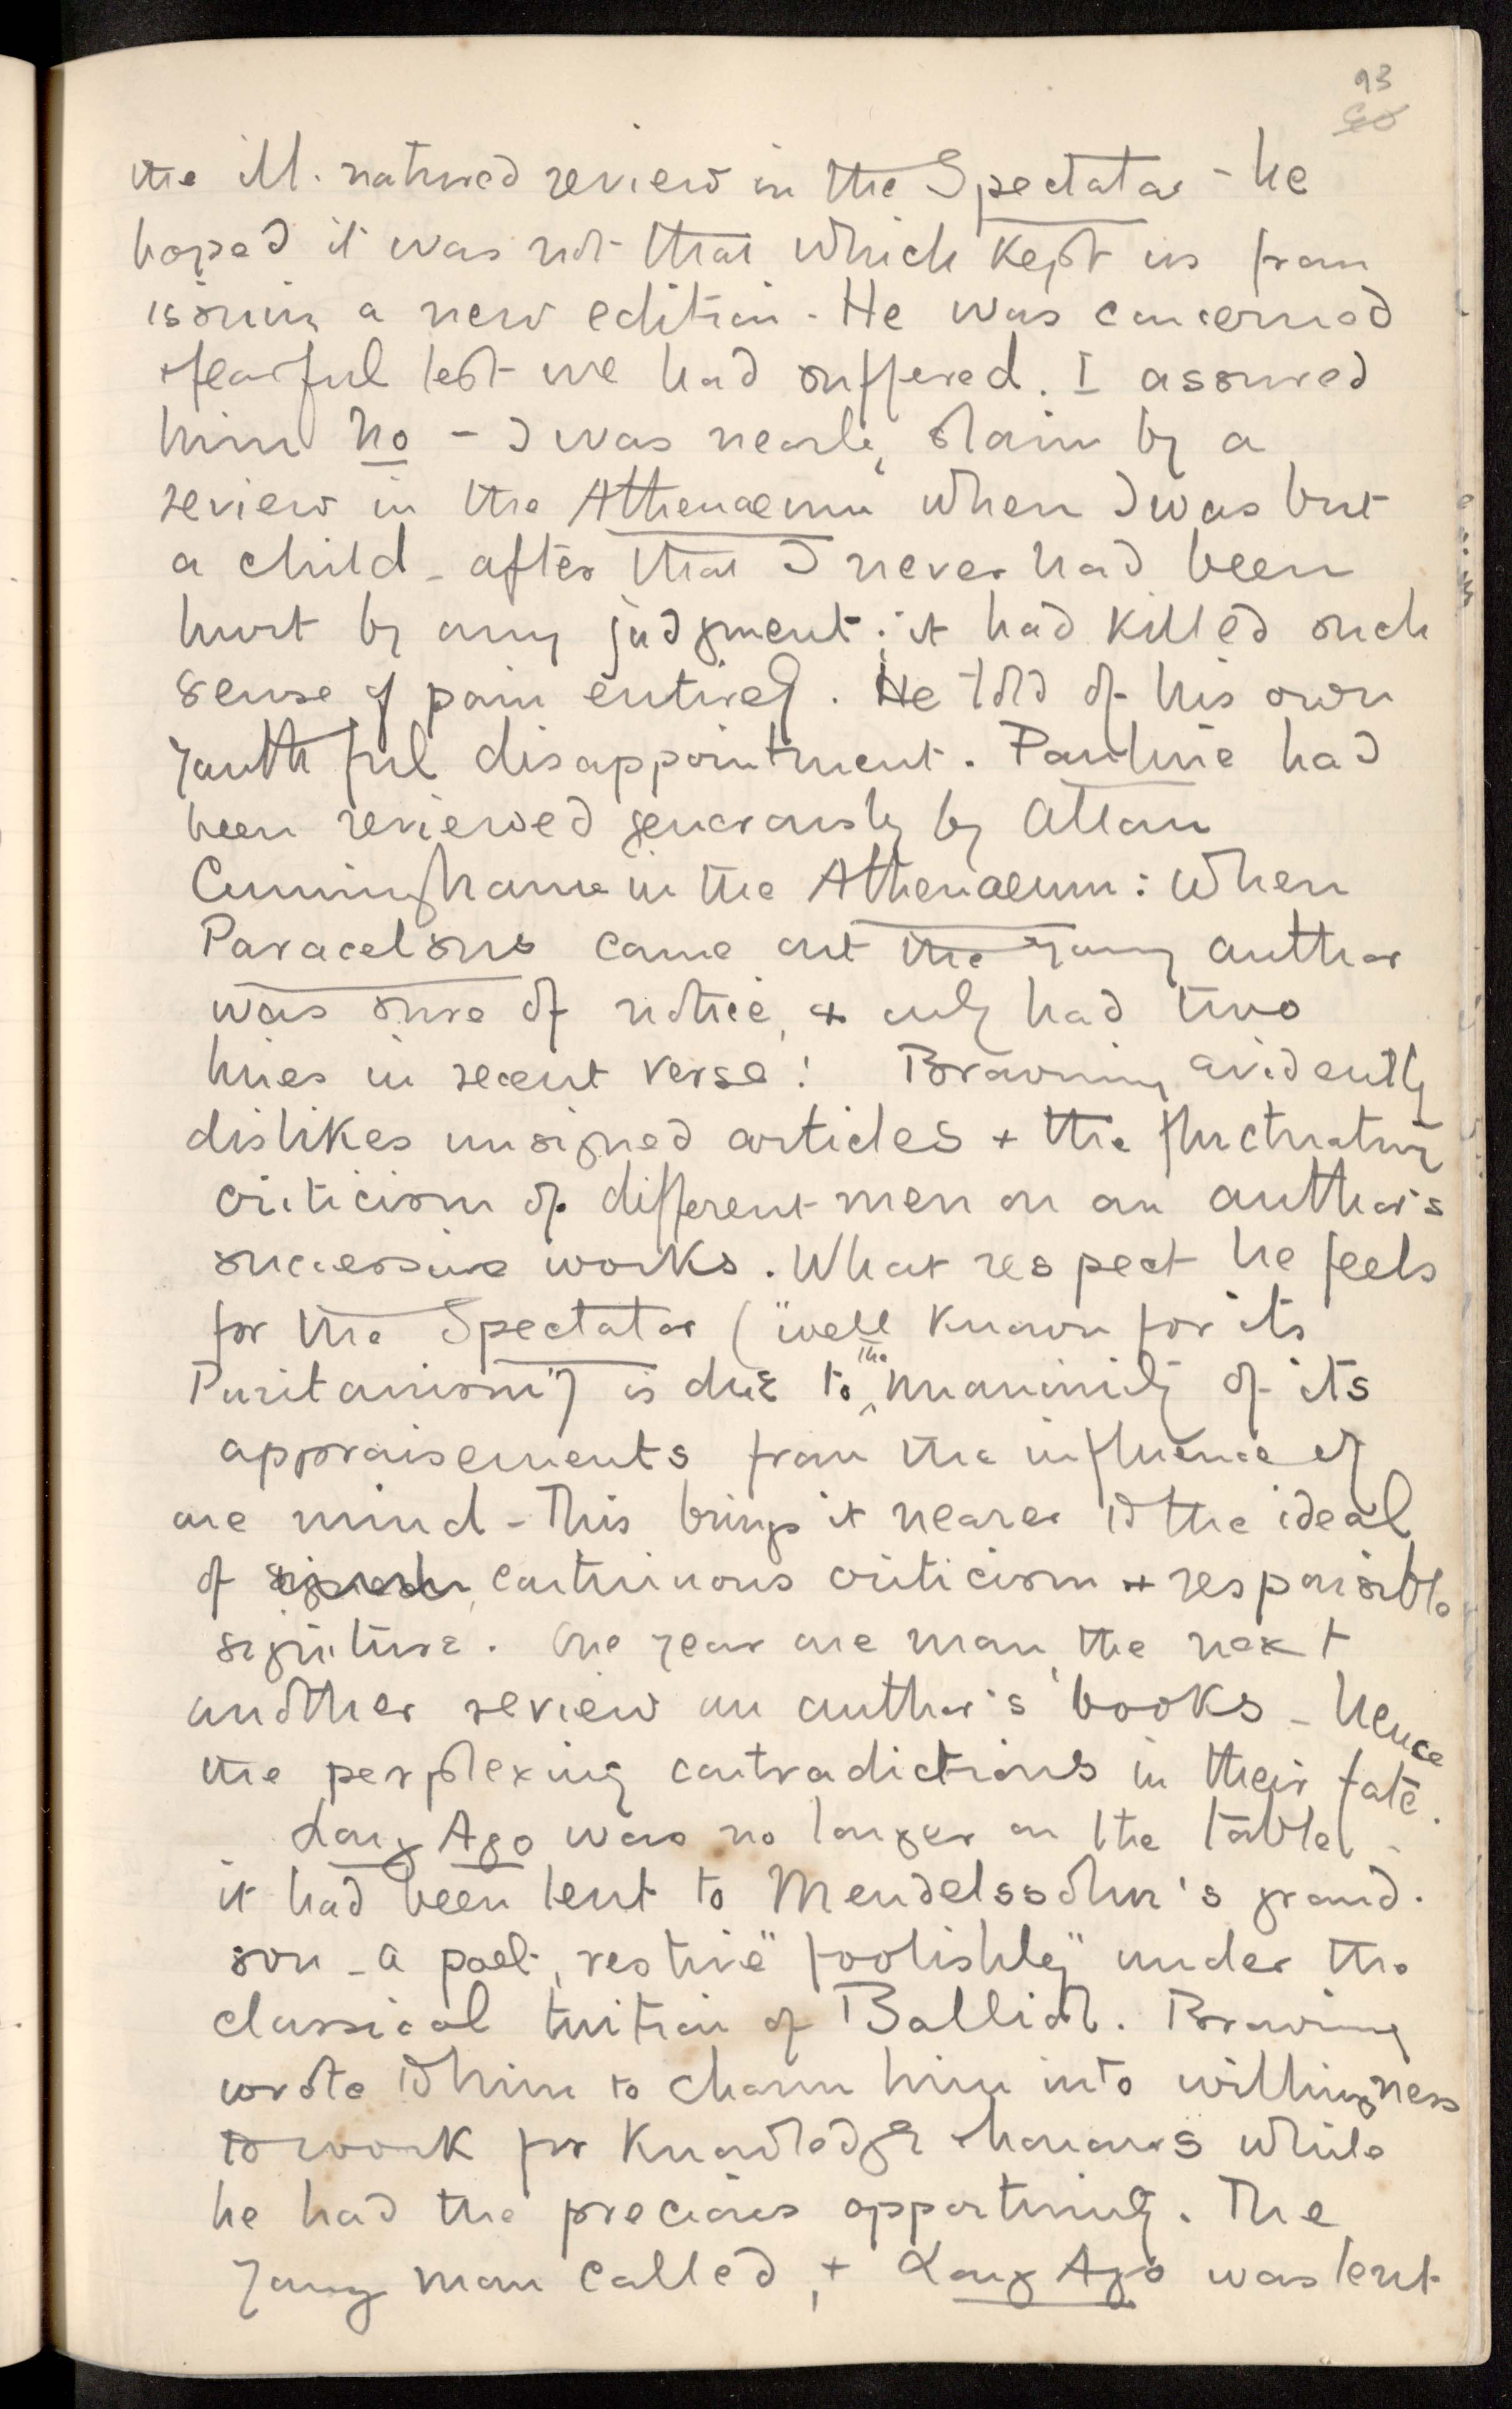 93
60
the ill-natured review in the Spectator - he
hoped it was not that which kept us from
issuing a new edition. He was concerned
+ fearful lest we had suffered. I assured
him no - I was nearly slain by a
review in the Athenaeum when I was but
a child - after that I never had been
hurt by any judgment; it had killed such
sense of pain entirely. He told of his own
youthful disappointment. Pauline had
been reviewed generously by Allan
Cunninghame in the Athenaeum: when
Paracelsus came out the young author
was sure of notice, & only had two
lines in recent verse! Browning evidently
dislikes unsigned articles + the fluctuating
criticism of different men on an author's
successive works. What respect he feels
for the Spectator ("well known for its
Puritanism") is due to the unanimity of its
appraisements from the influence of
one mind - This brings it nearer to the ideal
of continuous criticism + responsible
signiture. One year one man, the next
another review an author's books - hence
the perplexing contradictions in their fate.
Long Ago was no longer on the table -
it had been lent to Mendelssohn's grand-
son - a poet, restive "foolishly" under the
classical tuition of Balliol. Browning
wrote to him to charm him into willingness
to work for knowledge + honours while
he had the precious opportunity. The
young man called, + Long Ago was lent